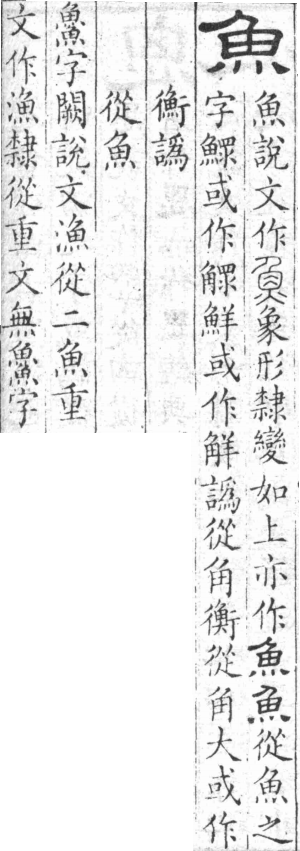 魚
魚說文作𩵋象形隸變如上亦作魚魚從魚之
字鰥或作觸鮮或作觧譌從角衡從角大或作
衡譌
從魚
䲆字闕說文漁從二魚重
文作漁隸從重文無䲆字